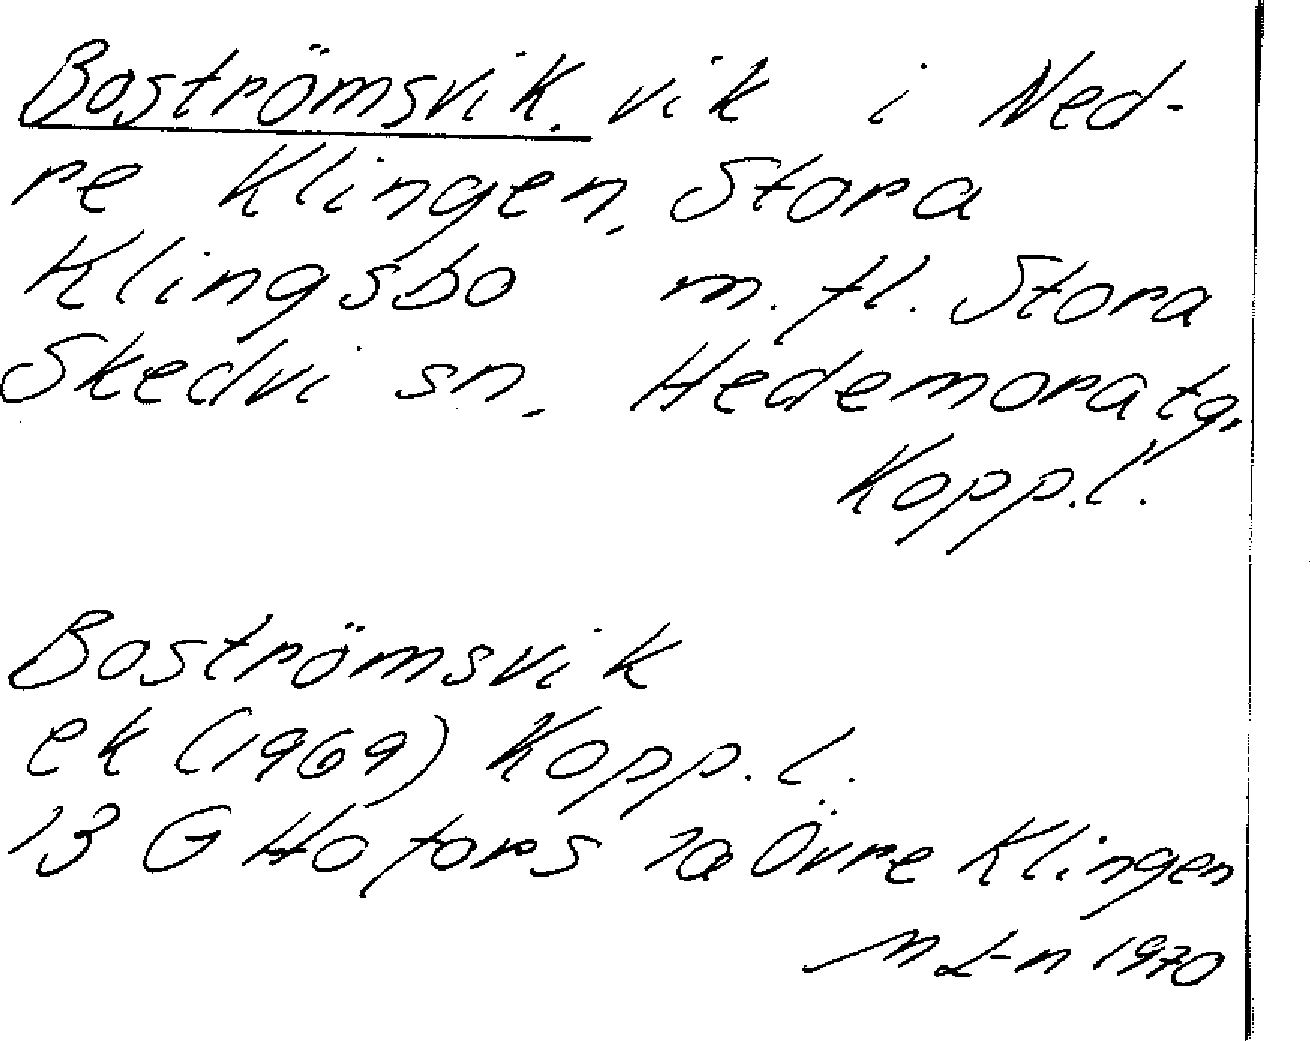 Boströmsvik. vik i Ned-
re Klingen, Stora
Klingsbo m.fl. Stora
Skedvi sn. Hedemora tg,
Kopp.l.
Boströmsvik
ek (1969) Kopp.l.
13 G Hofors 1a Övre Klingen
M L-n 1970